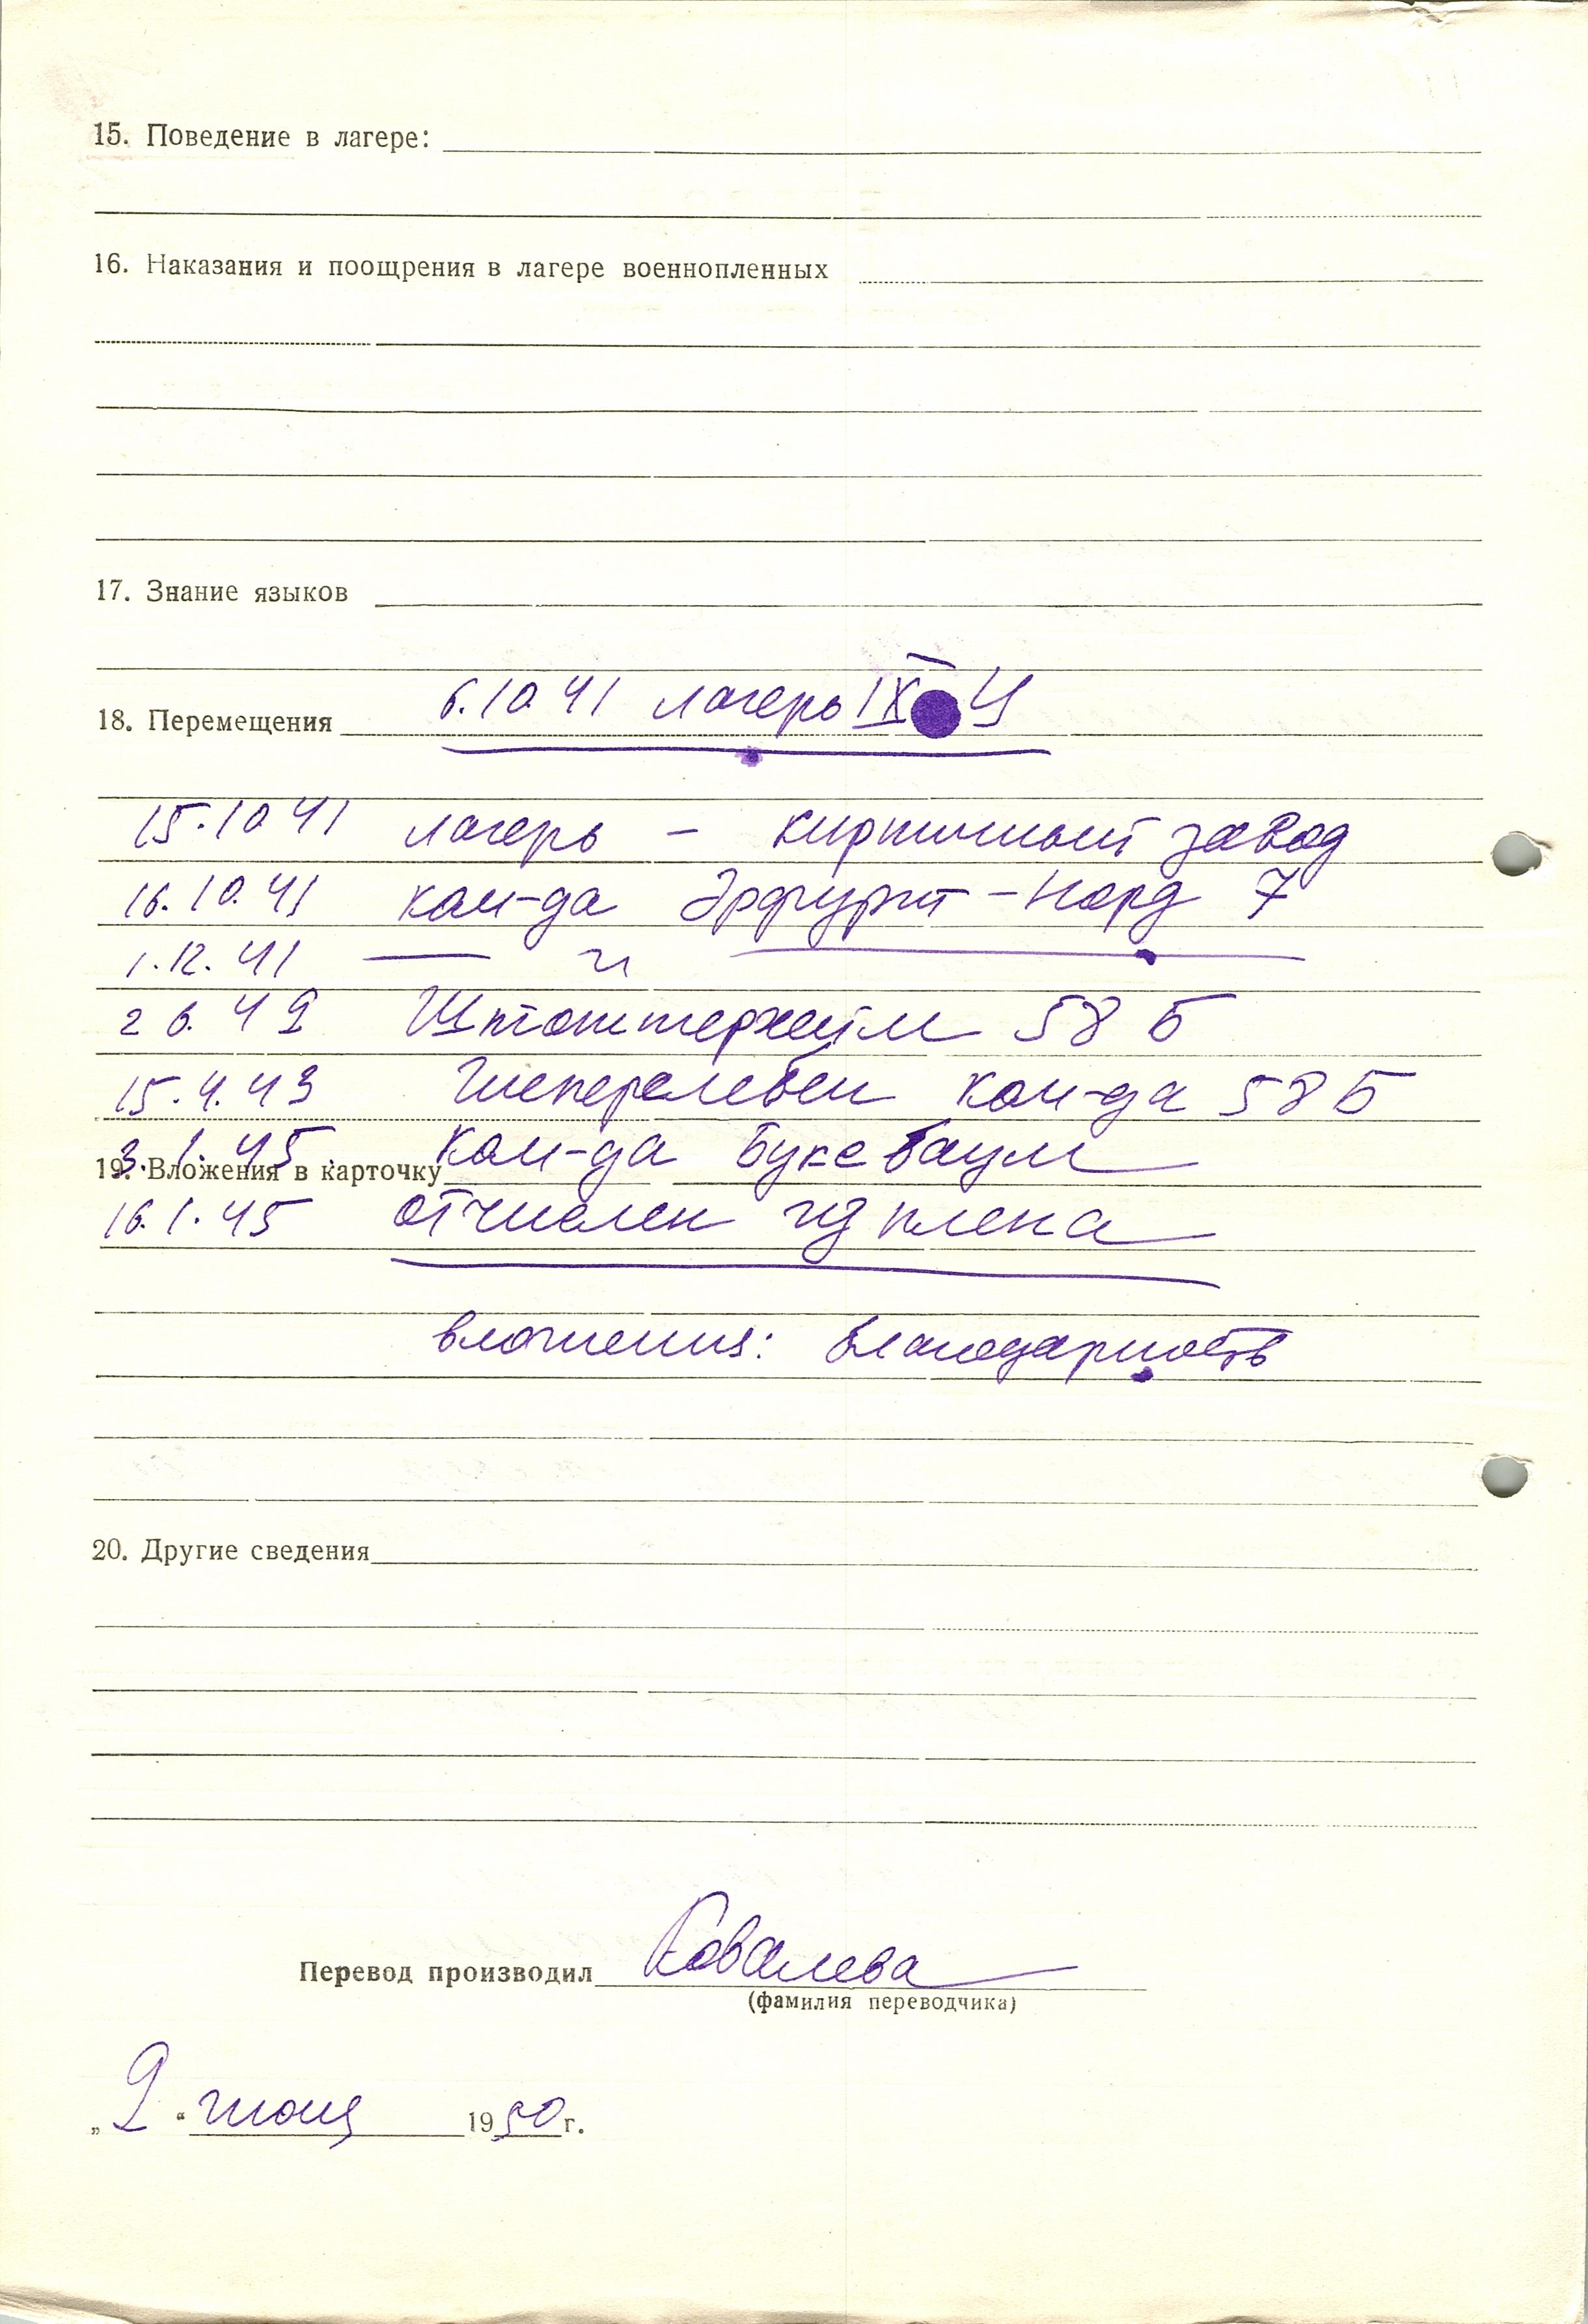 15. Поведение в лагере:
16. Наказания и поощрения в лагере военнопленных
17. Знание языков
18. Перемещения 6.10.41 лагерь IX Ц
15.10 41 лагерь – кирпичный завод
16.10.41 ком-да Эрфурт – Норд 7
1.12.41 — и —
2 6. 42 Штоттерхейм 58 Б
15.4.43 ком-да 58 Б
3.1.45 ком-да Букебаум
19. Вложения в карточку
16.1.45 отчислен из плена
вложения: благодарность
20. Другие сведения
Перевод производил Ковалева
(фамилия переводчика)
„2“ июня 1950 г.